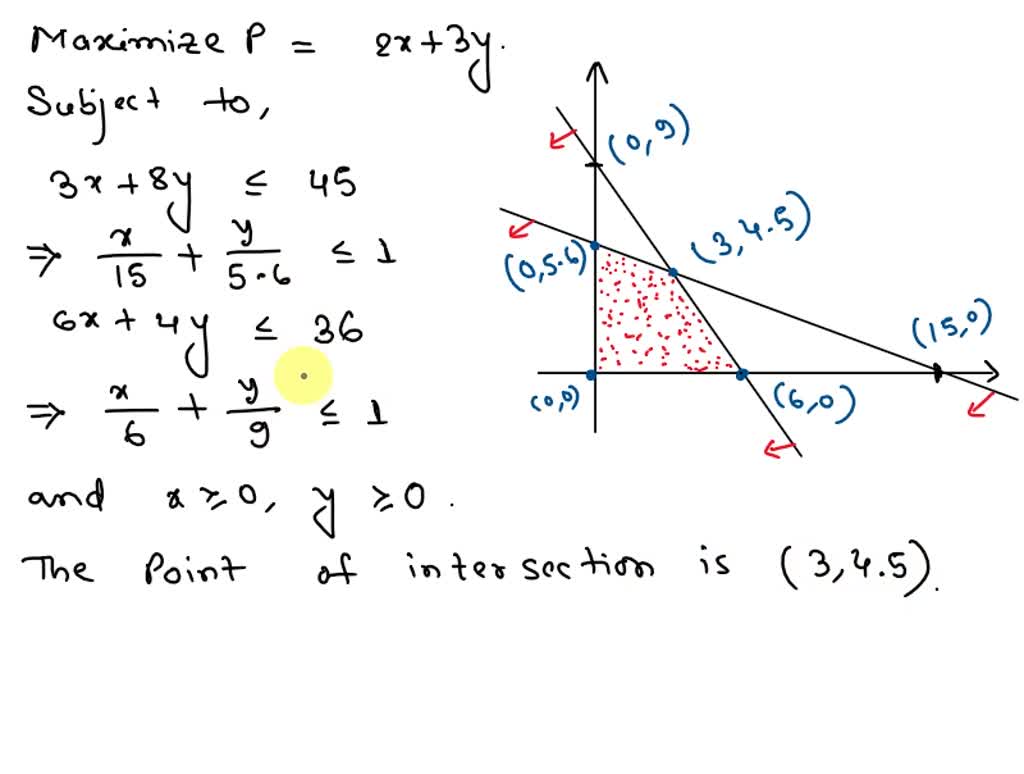 Maximize P = 2x+3y.
Subject to,
3x+8y ≤ 45
⇒ x/15 + y/5.6 ≤ 1
6x+4y ≤ 36
⇒ x/6 + y/9 ≤ 1
and x ≥ 0, y ≥ 0.
The Point of intersection is (3,4.5).
(0,9)
(3,4.5)
(0,5.6)
(15,0)
(0,0)
(6,0)